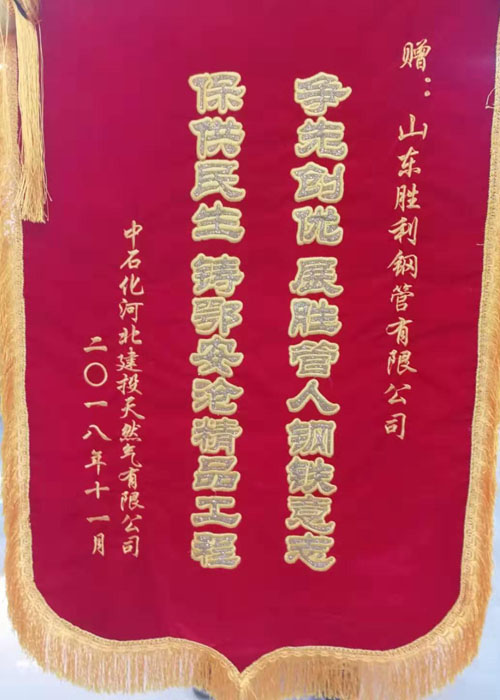 赠：山东胜利钢管有限公司
争先创优 展胜管人钢铁意志
保供民生 铸鄂安沧精品工程
中石化河北建投天然气有限公司
二〇一八年十一月